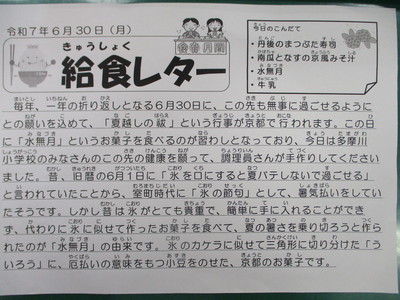 令和7年6月30日（月）
きゅうしょく
給食レター
今日のこんだて
・丹後のまつぶた寿司
・南瓜となすの京風みそ汁
・水無月
・牛乳
毎年、一年の折り返しとなる6月30日に、この先も無事に過ごせるように
との願いを込めて、「夏越しの祓」という行事が京都で行われます。この日
に「水無月」というお菓子を食べるのが習わしとなっており、今日は多摩川
小学校のみなさんのこの先の健康を願って、調理員さんが手作りしてください
ました。昔、旧暦の6月1日に「氷を口にすると夏バテしないで過ごせる」
と言われていたことから、室町時代に「氷の節句」として、暑気払いをしてい
たそうです。しかし昔は氷がとても貴重で、簡単に手に入れることができ
ず、代わりに氷に似せて作ったお菓子を食べて、夏の暑さを乗り切ろうと作ら
れたのが「水無月」の由来です。氷のカケラに似せて三角形に切り分けた「う
いろう」に、厄払いの意味をもつ小豆をのせた、京都のお菓子です。